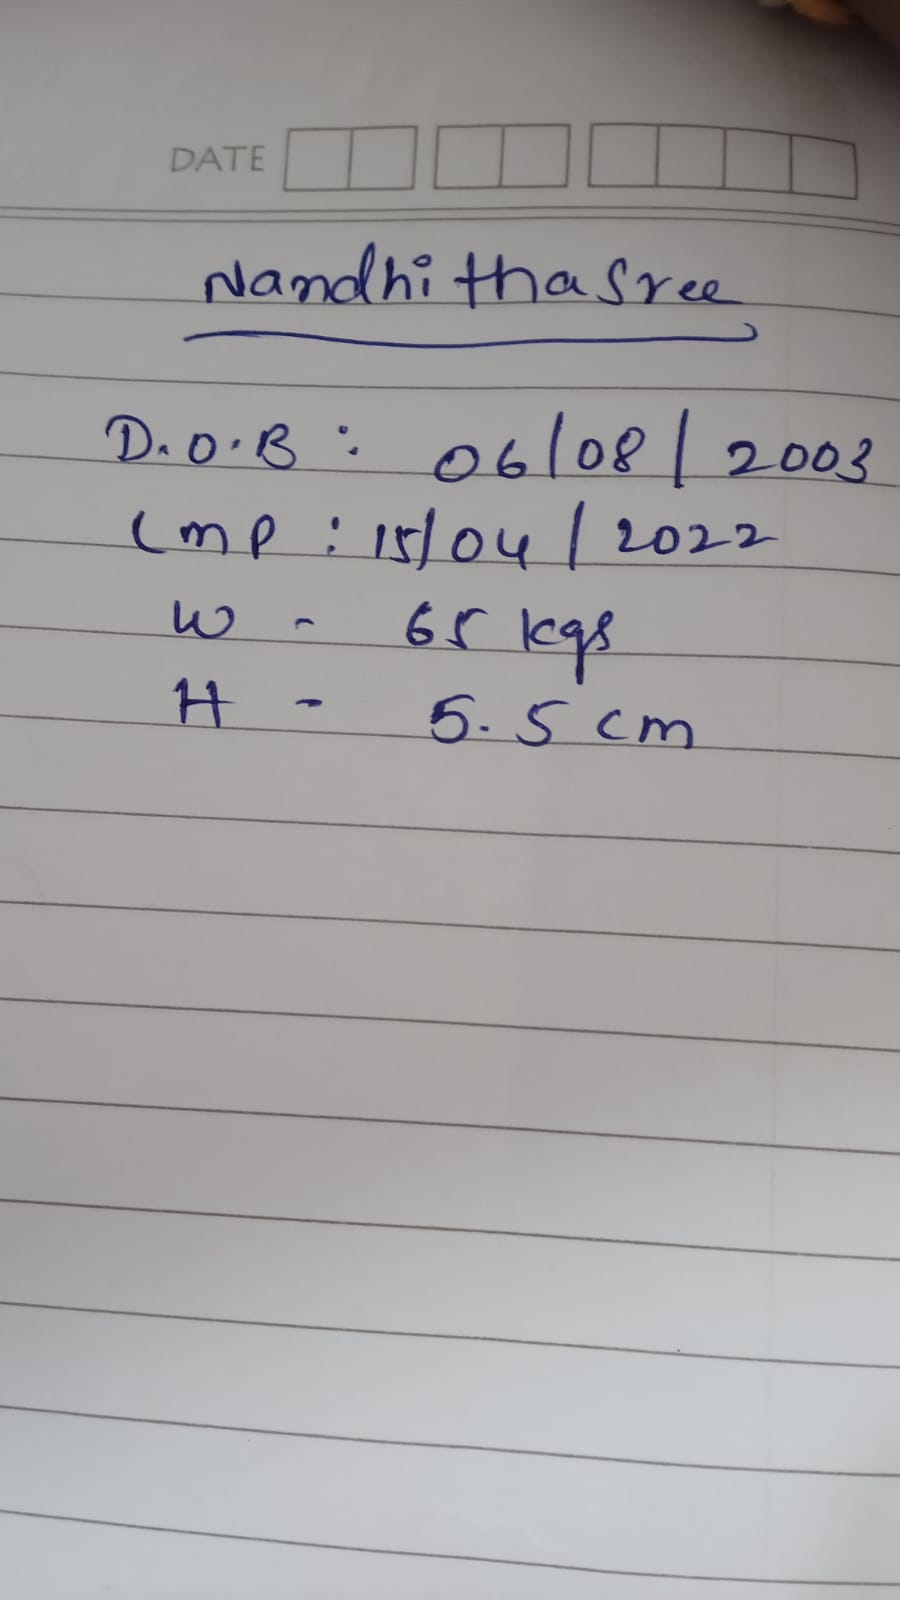 DATE
Nandhitha Sree
D.O.B : 06/08/2003
Lmp : 15/04/2022
W - 65 kgs
H - 5.5 cm